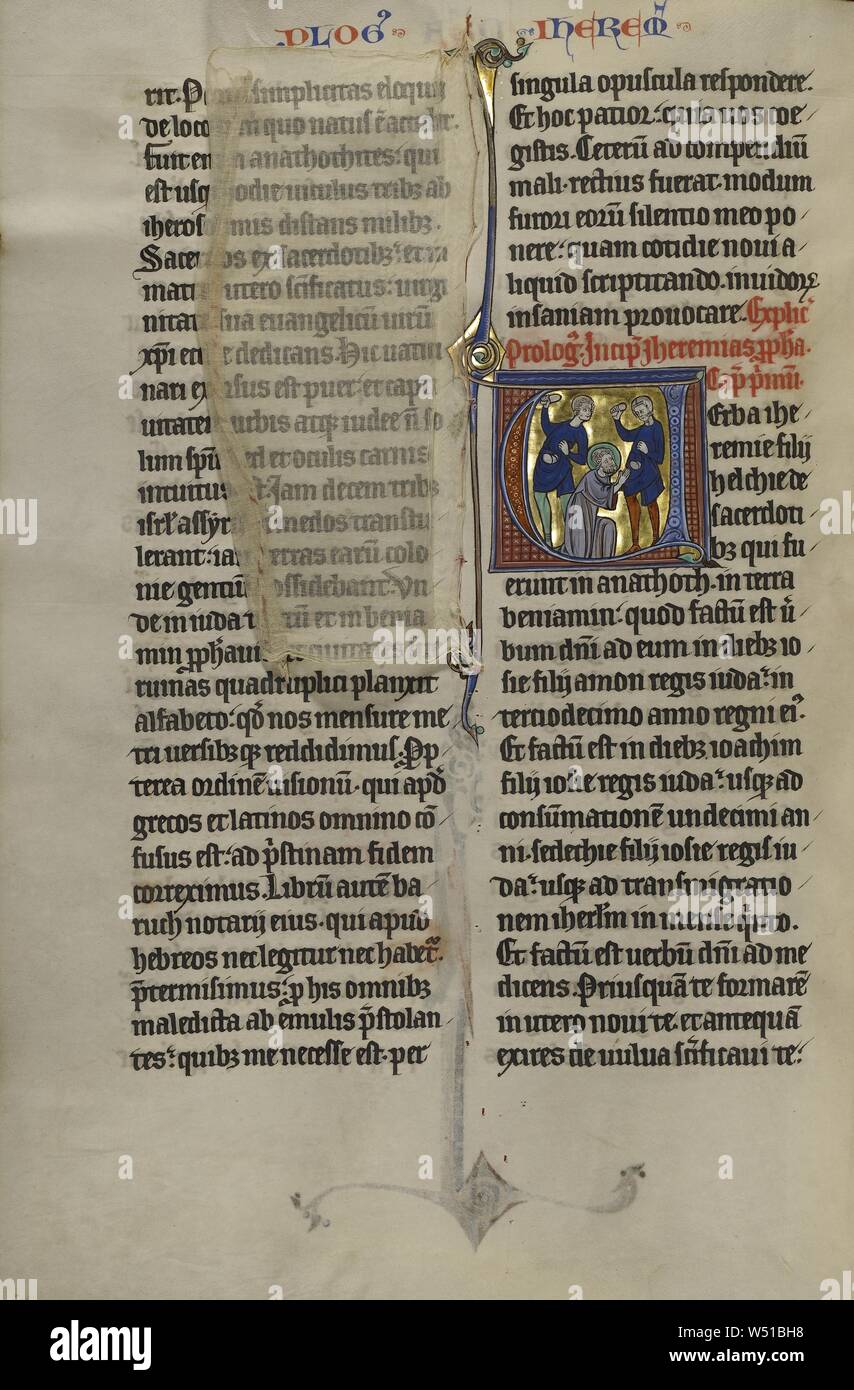 PLOG' IHEREM'
rit. simplicitas eloquii
de loco in quo natus ē
fuit en anathothites: qui
est usq hodie uiculus tribꝫ ab
iheros distans milibꝫ.
Sacer ex sacerdotibꝫ: et in
matris utero scīficatus: uirgi
nitate sua euangelicū uirū
xpī dedicans. Hic uatici
nari exorsus est puer: et capti
uitatem urbis atqꝫ iudee ñ so
lum spū sed et oculis carnis
intuitus est. Iam decem tribꝫ
isrl' assyrii in medos transtu
lerant: iam terras earū colo
nie gentiū possidebant. Vn
de in iuda tantū et in benia
min pphauit et ciuitatis sue
ruinas quadruplici planxit
alfabeto: qd nos mensure me
tri uersibꝫqꝫ reddidimus. Pp
terea ordinē uisionū. qui apd
grecos et latinos omnino cō
fusus est: ad pstinam fidem
correximus. Librū autē ba
ruch notarij eius. qui apud
hebreos nec legitur nec habet'.
ptermisimus: p his omnibꝫ
maledicta ab emulis pstolan
tes: quibꝫ me necesse est. per
singula opuscula respondere.
Et hoc patior: quia uos coe
gistis. Ceterū ad compendiū
mali. rectius fuerat. modum
furori eorū silentio meo po
nere: quam cotidie noui a
liquid scriptitando. inuidoꝝ
insaniam prouocare. Explic'
Prolog'. Incip Iheremias ppha.
C. p pmū.
Erba ihe
remie filij
helchie de
sacerdoti
bꝫ qui fu
erunt in anathoth. in terra
beniamin: quod factū est ū
bum dñi ad eum in diebꝫ io
sie filij amon regis iuda: in
tertiodecimo anno regni ei'.
Et factū est in diebꝫ ioachim
filij iosie regis iuda: usqꝫ ad
consūmationē undecimi an
ni. sedechie filij iosie regis iu
da: usqꝫ ad transmigratio
nem iherlm in mense quinto.
Et factū est uerbū dñi ad me
dicens. Priusquā te formarē
in utero noui te. et antequā
exires de uulua scīficaui te:
alamy
Image ID: W51BH8
www.alamy.com